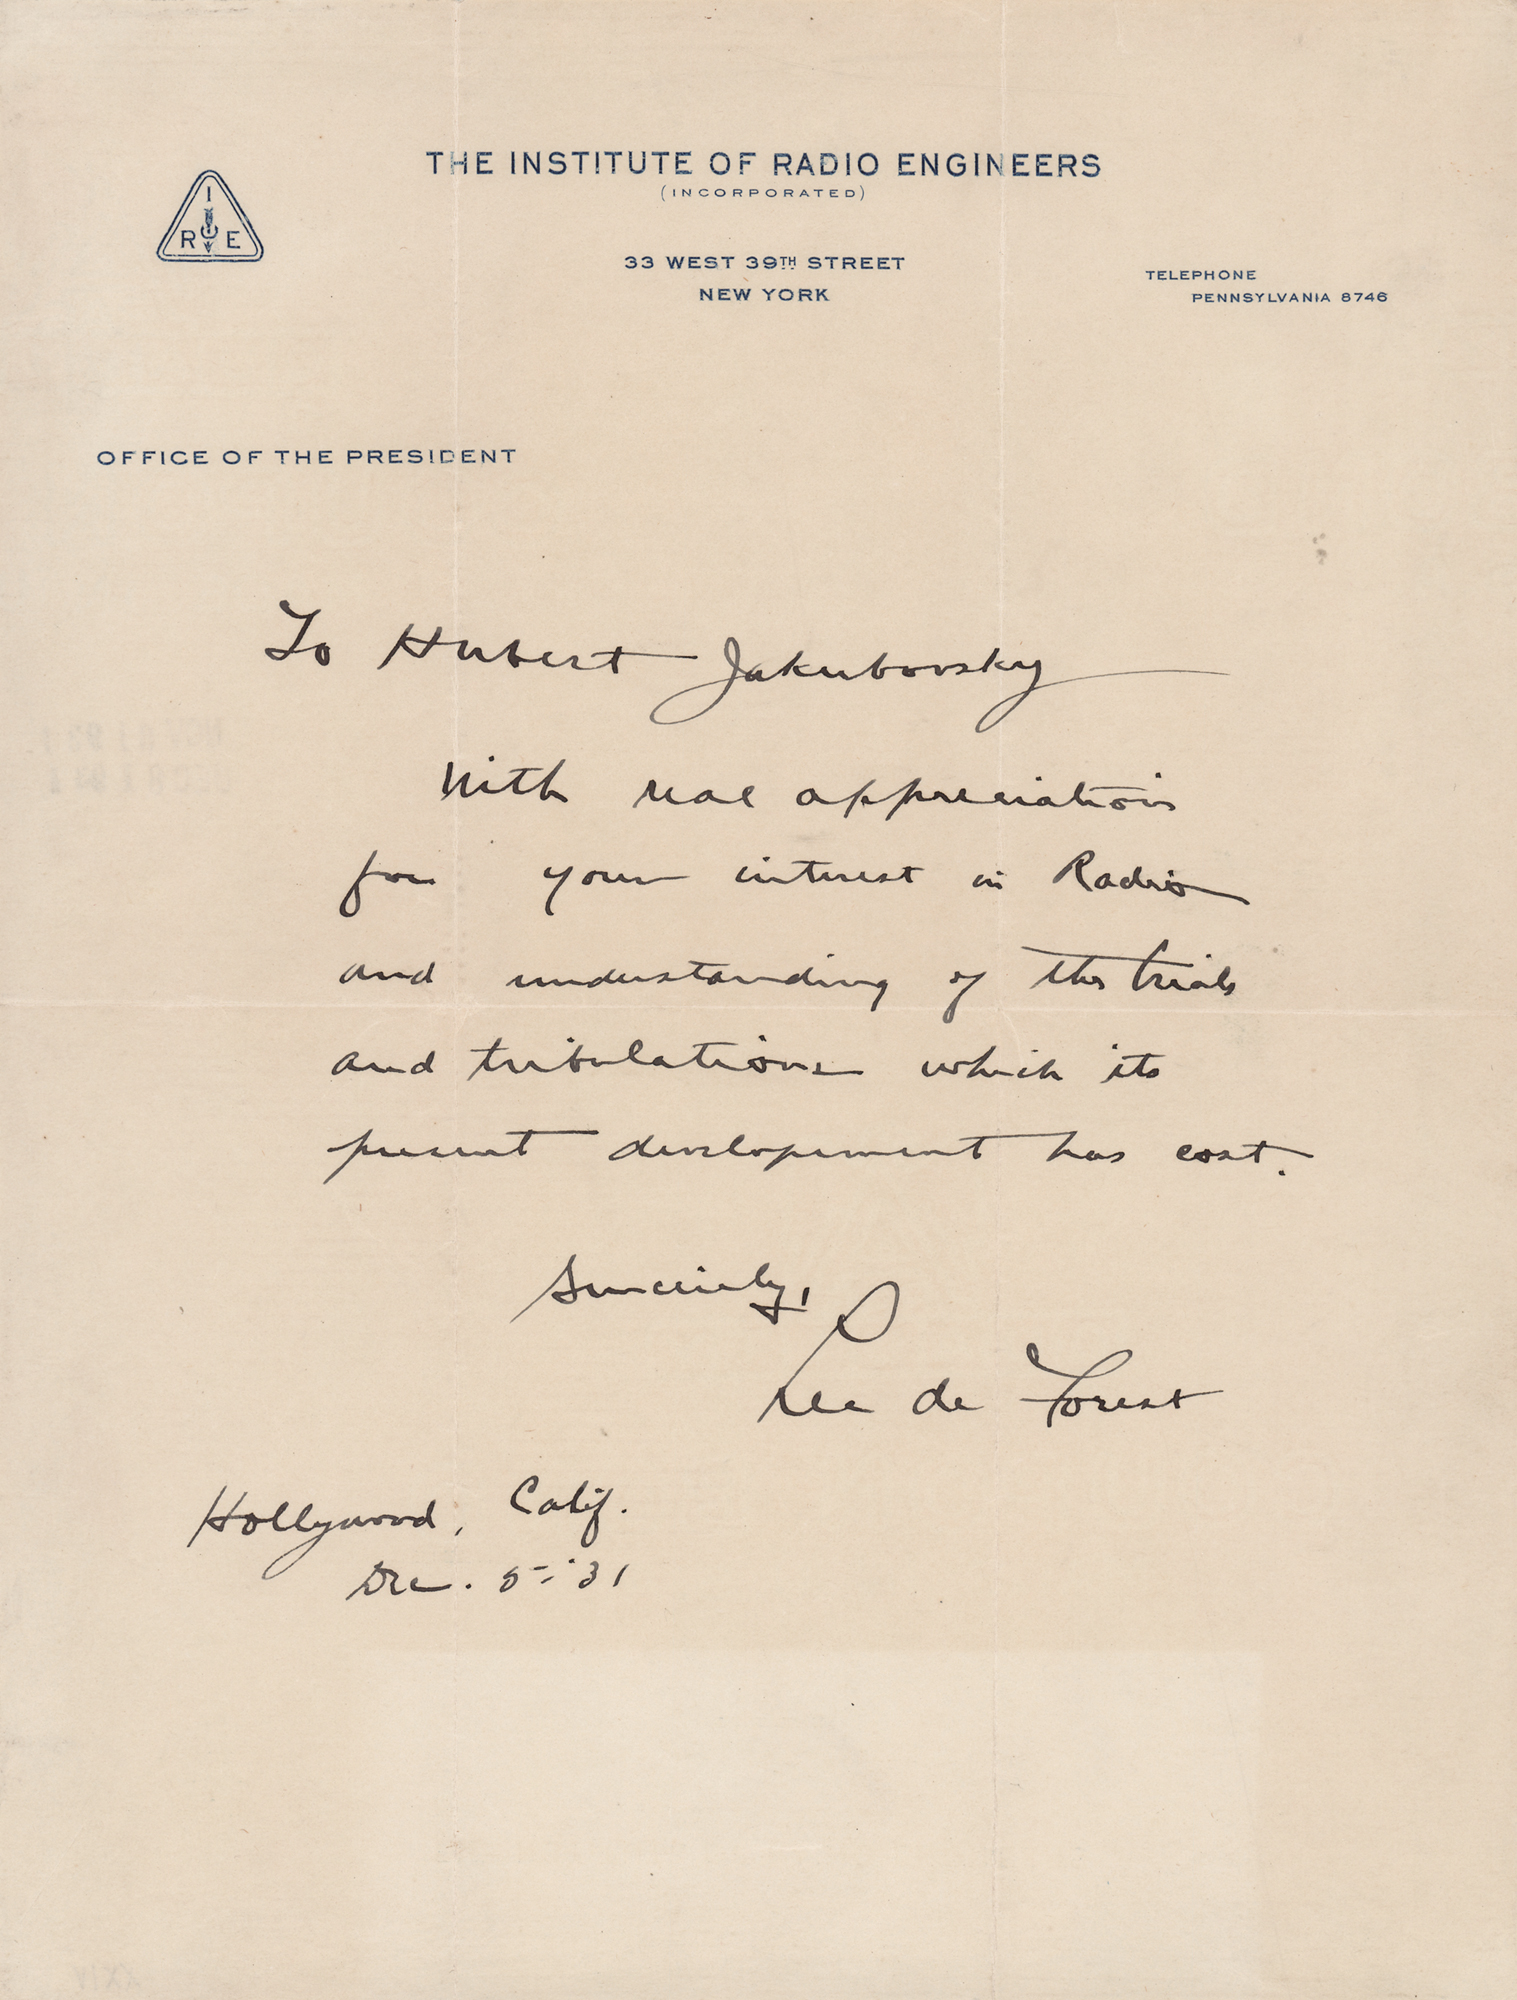 THE INSTITUTE OF RADIO ENGINEERS
(INCORPORATED)
I
R E
33 WEST 39TH STREET
NEW YORK
TELEPHONE
PENNSYLVANIA 8746
OFFICE OF THE PRESIDENT
To Hubert Jakubovsky
With real appreciation
for your interest in Radio
and understanding of the trials
and tribulations which its
present developement has cost.
Sincerely,
Lee de Forest
Hollywood, Calif.
Dec. 5-'31